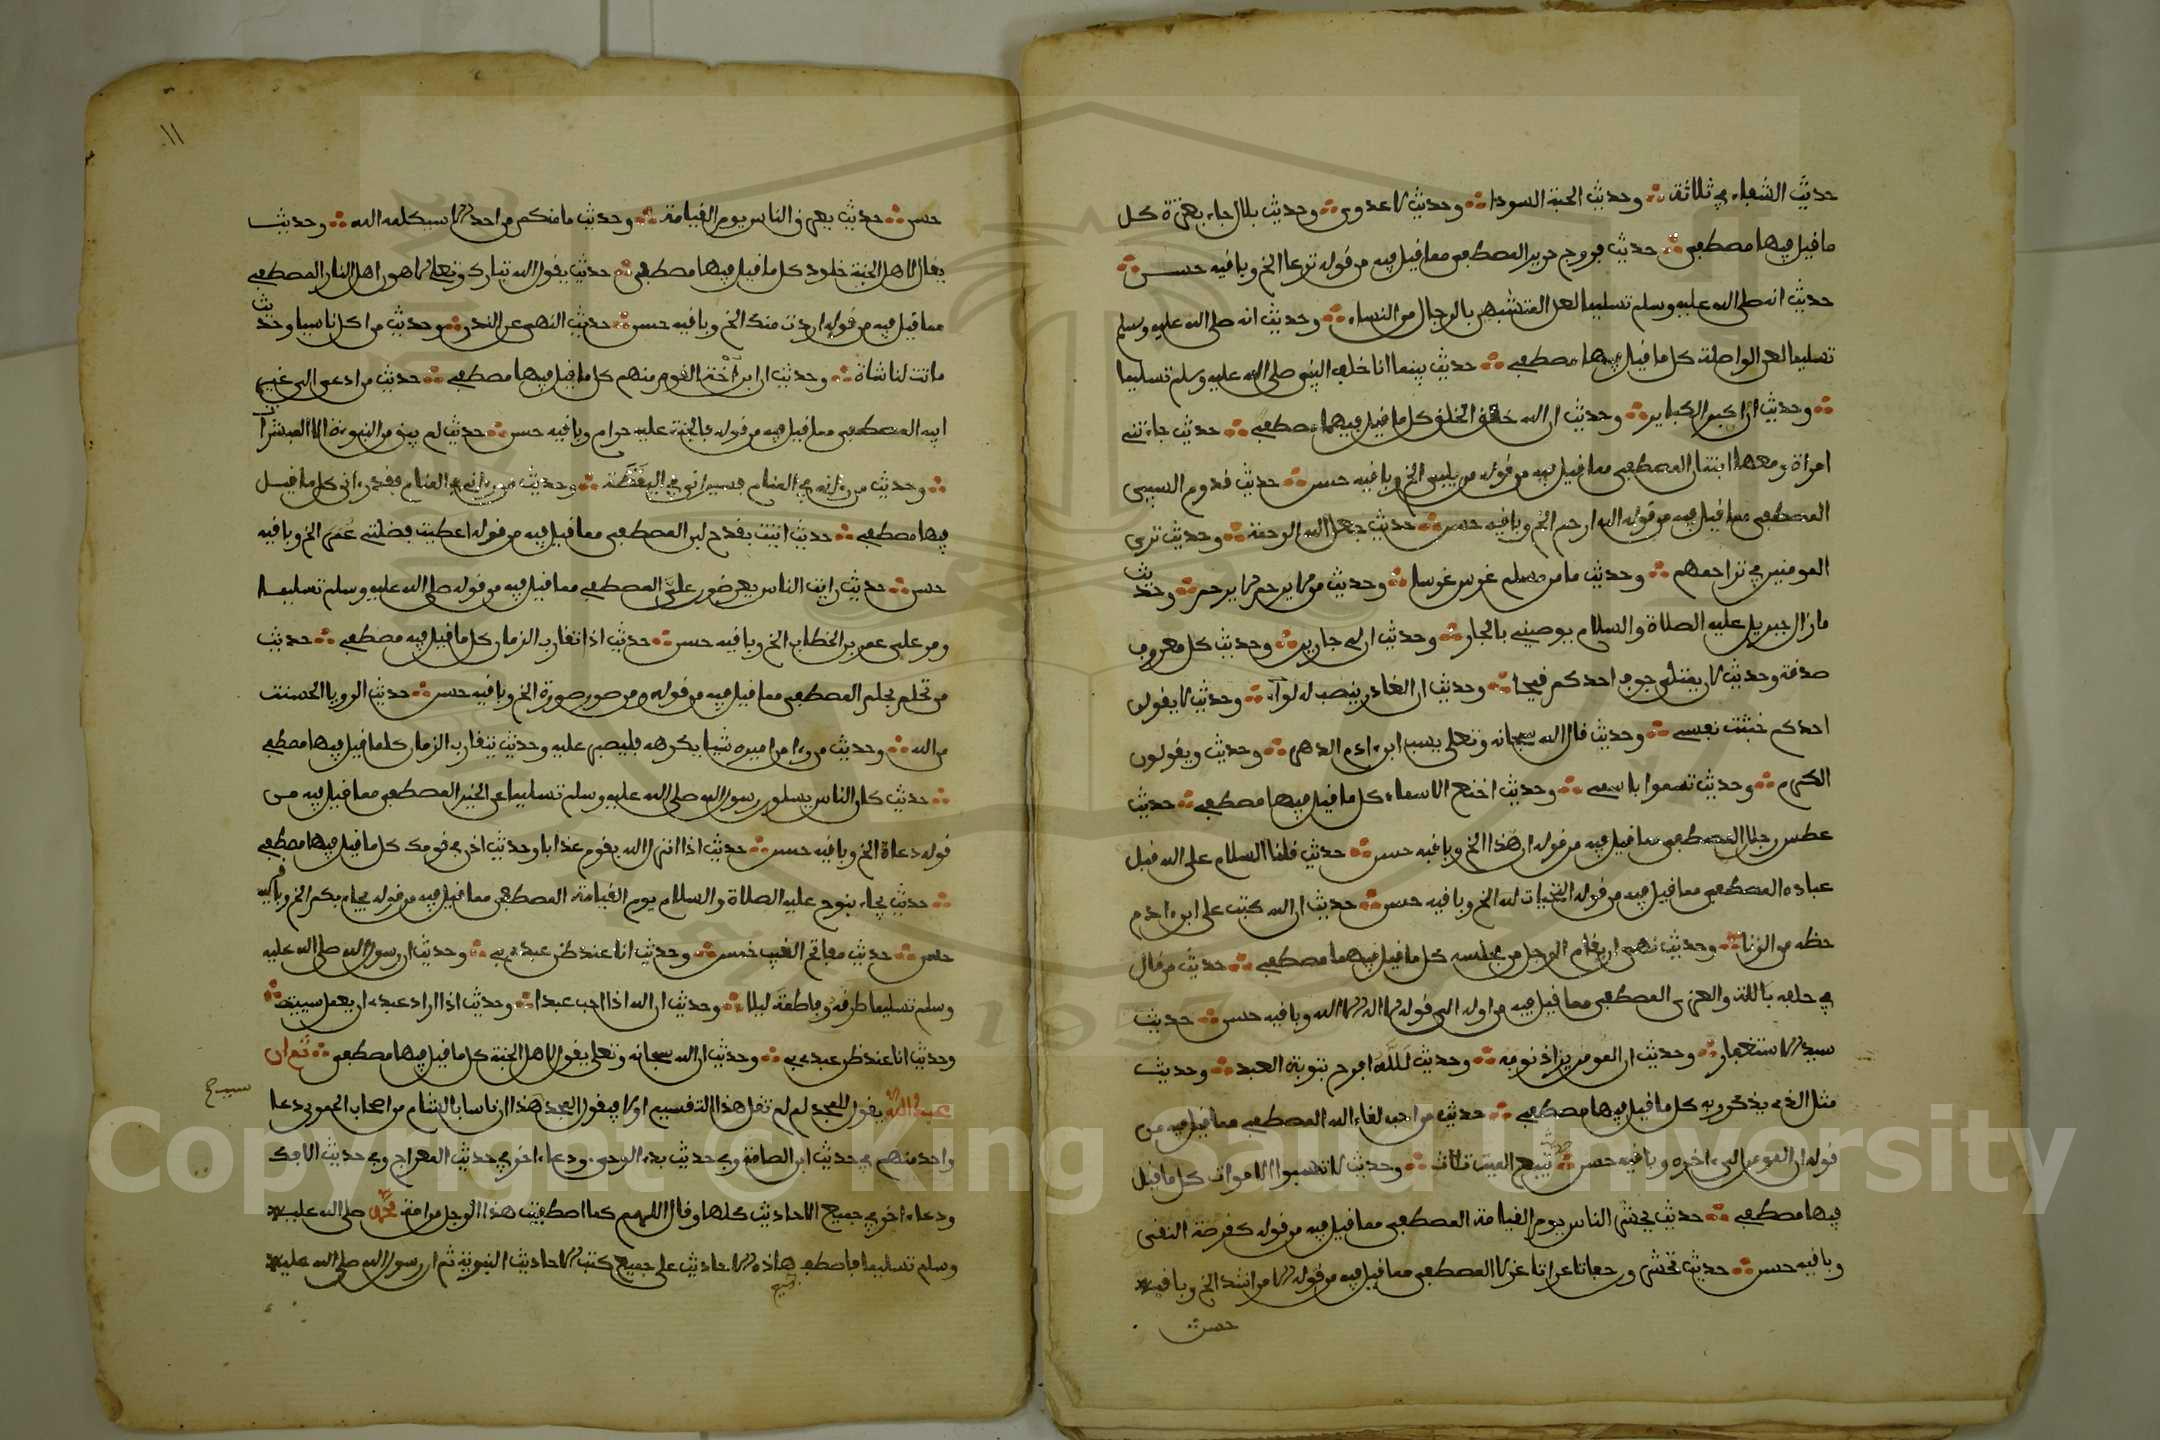 حديث الشفاء في ثلاثة وحديث الحبة السودا وحديث لا عدوى وحديث بلال جاء بعنزة كل
ما فيل فيها مصطفى حديث فروج حرير المصطفى مما فيل فيه من فوله نزعا الخ وبافيه حسن
حديث انه صلى الله عليه وسلم تسليما لعن المتشبهين بالرجال من النساء وحديث انه صلى الله عليه وسلم
تسليما لعن الواصلة كل ما فيل فيها مصطفى حديث بينما انا خلف النبي صلى الله عليه وسلم تسليما
وحديث ان اكبر الكباير وحديث ان الله خلق الخلق كل ما فيل فيها مصطفى حديث جاءتني
امراة ومعها ابنتان المصطفى مما فيل فيه من فوله من يلي الخ وبافيه حسن حديث فدوم السبي
المصطفى مما فيل فيه من فوله الله ارحم الخ وبافيه حسن حديث جعل الله الرحمة وحديث ترى
المومنين في تراحمهم وحديث ما من مسلم غرس غرسا وحديث من لا يرحم لا يرحم وحديث
ما زال جبريل عليه الصلاة والسلام يوصيني بالجار وحديث ان لي جارين وحديث كل معروف
صدفة وحديث لان يمتلي جوف احدكم فيحا وحديث ان الغادر ينصب له لواء وحديث لا يفولن
احدكم خبثت نفسي وحديث فال الله سبحانه وتعلى يسب ابن ءادم الدهر وحديث ويفولون
الكرم وحديث تسموا باسمي وحديث اخنع الاسماء كل ما فيل فيها مصطفى حديث
عطس رجلان المصطفى مما فيل فيه من فوله ان هذا الخ وبافيه حسن حديث فلنا السلام على الله فبل
عباده المصطفى مما فيل فيه من فوله التحيات لله الخ وبافيه حسن حديث ان الله كتب على ابن ءادم
حظه من الزنا وحديث نهى ان يفام الرجل من مجلسه كل ما فيل فيهما مصطفى حديث من فال
في حلفه باللات والعزى المصطفى مما فيل فيه من اوله الى فوله لا اله الا الله وبافيه حسن حديث
سيد الاستغفار وحديث ان المومن يرى ذنوبه وحديث لله افرح بتوبة العبد وحديث
مثل الذي يذكر ربه كل ما فيل فيها مصطفى حديث من احب لفاء الله المصطفى مما فيل فيه من
فوله ان المومن الى ءاخره وبافيه حسن يتبع الميت ثلاث وحديث لا تسبوا الاموات كل ما فيل
فيها مصطفى حديث يحشر الناس يوم الفيامة المصطفى مما فيل فيه من فوله كفرصة النفي
وبافيه حسن حديث تحشرون حفاتا عراتا غرلا المصطفى مما فيل فيه من فوله الامر اشد الخ وبافيه
حسن
١١
حسن حديث يعرق الناس يوم الفيامة وحديث ما منكم من احد الا سيكلمه الله وحديث
يفال لاهل الجنة خلود كل ما فيل فيها مصطفى حديث يفول الله تبارك وتعلى لاهون اهل النار المصطفى
مما فيل فيه من فوله اردت منك الخ وبافيه حسن حديث النهي عن النذر وحديث من اكل ناسيا وحديث
ماتت لنا شاة وحديث ان ابن اخت الفوم منهم كل ما فيل فيها مصطفى حديث من ادعى الى غير
ابيه المصطفى مما فيل فيه من فوله فالجنة عليه حرام وبافيه حسن حديث لم يبق من النبوة الا المبشرات
وحديث من رءاني في المنام فسيراني في اليفظة وحديث من رءاني في المنام ففد رءاني كل ما فيل
فيها مصطفى حديث اتيت بفدح لبن المصطفى مما فيل فيه من فوله اعطيت فضلتي عمر الخ وبافيه
حسن حديث رايت الناس يعرضون علي المصطفى مما فيل فيه من فوله صلى الله عليه وسلم تسليما
ومر على عمر بن الخطاب الخ وبافيه حسن حديث اذا تفارب الزمان كل ما فيل فيه مصطفى حديث
من تحلم بحلم المصطفى مما فيل فيه من فوله ومن صور صورة الخ وبافيه حسن حديث الرويا الحسنت
من الله وحديث من رءا من اميره شيا يكرهه فليصبر عليه وحديث يتفارب الزمان كل ما فيل فيها مصطفى
حديث كان الناس يسلون رسول الله صلى الله عليه وسلم تسليما عن الخير المصطفى مما فيل فيه من
فوله دعاة الخ وبافيه حسن حديث اذا انزل الله بفوم عذابا وحديث اذن في فومك كل ما فيل فيها مصطفى
حديث يجاء بنوح عليه الصلاة والسلام يوم الفيامة المصطفى مما فيل فيه من فوله يجاء بكم الخ وبافيه
حسن حديث مفاتح الغيب خمس وحديث انا عند ظن عبدي بي وحديث ان رسول الله صلى الله عليه
وسلم تسليما طرفه وفاطمة ليلا وحديث ان الله اذا احب عبدا وحديث اذا اراد عبدي ان يعمل سيية
وحديث انا عند ظن عبدي بي وحديث ان الله سبحانه وتعلى يفول لاهل الجنة كل ما فيل فيها مصطفى ثم ان
عبد الله يفول للعبد لم لم تفل هذا التفسيم اولا فيفول العبد هذا ان ناسا بالشام من اصحاب الحموني دعا
واحد منهم في حديث ابن الصامة وفي حديث بدء الوحي ودعاء اخر في حديث المعراج وفي حديث الافك
ودعاء اخر في جميع الاحاديث كلها وفال اللهم كما اصطفيت هذا الرجل من امة محمد صلى الله عليه
وسلم تسليما فاصطف هاذه الاحاديث على جميع كتب الاحاديث النبوية ثم ان رسول الله صلى الله عليه
Copyright © King Saud University